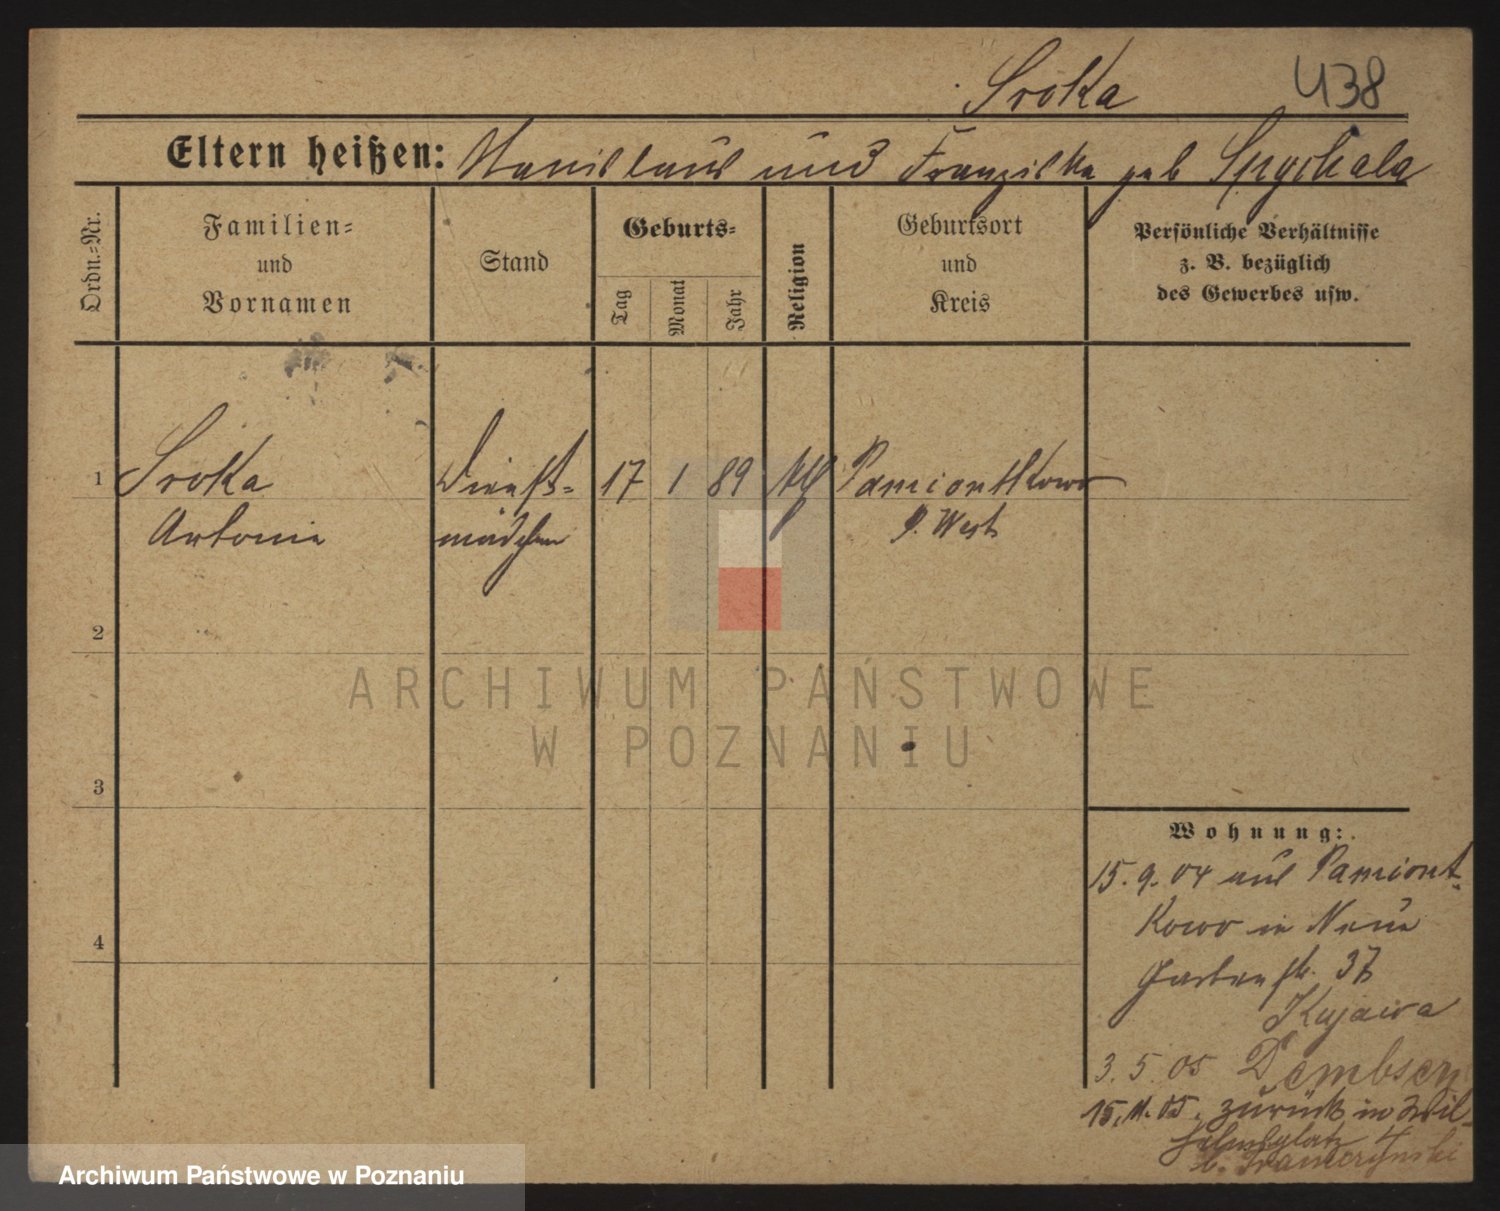 Sroka 438
Eltern heißen: Stanislaus und Franziska geb Spychala
Ordn.-Nr.
Familien-
und
Vornamen
Stand
Geburts-
Tag
Monat
Jahr
Religion
Geburtsort
und
Kreis
Persönliche Verhältnisse
z. B. bezüglich
des Gewerbes usw.
1 Sroka Dienst- 17 1 89 Pamiontkowo
Antonie mädchen P. West
2
3
4
ARCHIWUM PAŃSTWOWE
W POZNANIU
Wohnung:
15.9.04 aus Pamiont-
kowo in Neue
Gartenstr. 37
Kujawa
3.5.05 Dembsen
15.11.05. zurück in Wil-
helmsplatz 4
Archiwum Państwowe w Poznaniu